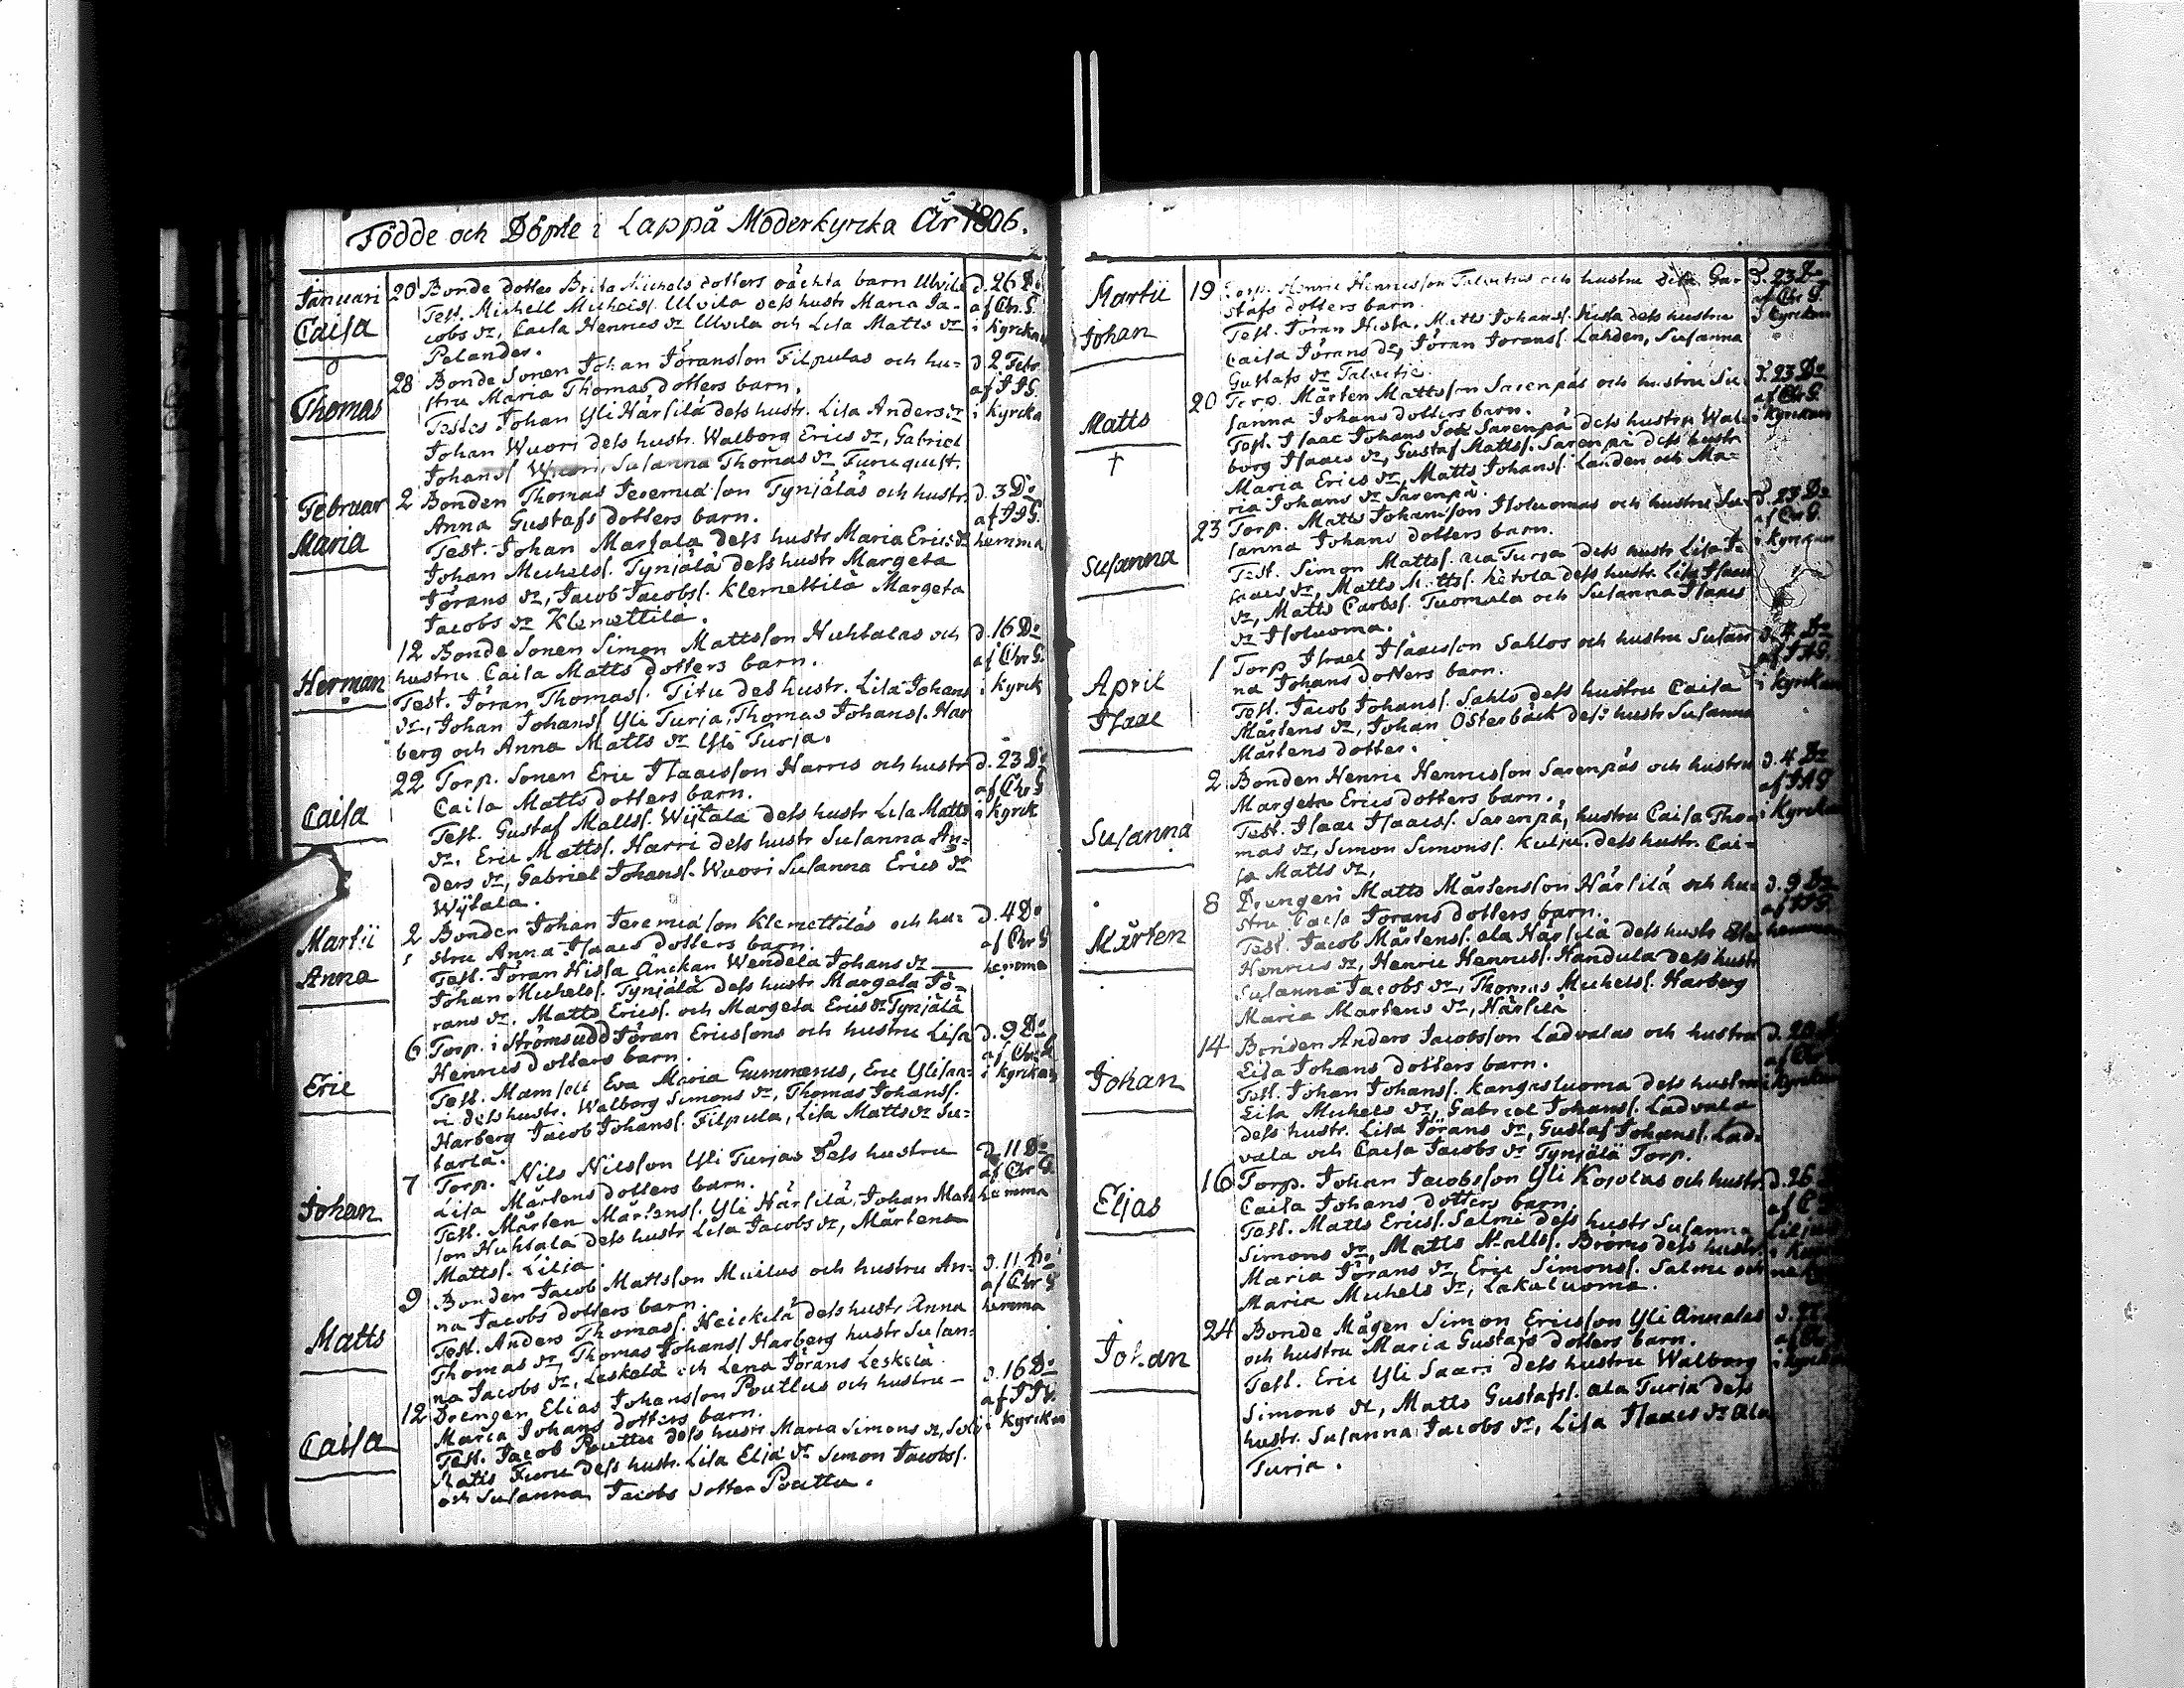 Födde och Döpte i Lappå Moderkyrcka År 1806.
Januari 20 Bonde dotter Brita Michels dotters oächta barn Ulvila d. 26 Do
Test. Michell Michels/. Ulvila dess hustr Maria Ja- af Chr. G.
Caisa cobs dr, Caisa Henrics dr Ulvila och Lisa Matts dr i Kyrckan
Pelander.
28 Bonde Sonen Johan Jöransson Filpulas och hu= d. 2 Febr.
Thomas stru Maria Thomas dotters barn. af J I G.
Testes Johan Yli Härsilä dess hustr. Lisa Anders dr i Kyrcka
Johan Wuori dess hustr. Walborg Erics dr, Gabriel
Johans/ Wuori, Susanna Thomas dr Furuquist.
Februar 2 Bonden Thomas Jeremiasson Tynjäläs och hustr. d. 3 Do
Anna Gustafs dotters barn. af J I G.
Maria Test. Johan Marsala dess hustr Maria Erics dr hemma
Johan Michels/. Tynjälä dess hustr Margeta
Jörans dr, Jacob Jacobs/. Klemettilä Margeta
Jacobs dr Klemettilä.
12 Bonde Sonen Simon Mattsson Huhtalas och d. 16 Do
hustru Caisa Matts dotters barn. af Chr G.
Herman Test. Jöran Thomas/. Titu dess hustr. Lisa Johans i Kyrck
dr, Johan Johans/ Yli Turja, Thomas Johans/. Har
berg och Anna Matts dr Yli Turja.
22 Torp. Sonen Eric Isaacsson Harris och hustr d. 23 Do
Caisa Matts dotters barn. af Chr G
Caisa Test. Gustaf Matts/. Wijtala dess hustr Lisa Matts i Kyrck
dr. Eric Matts/. Harri dess hustr Susanna An=
ders dr, Gabriel Johans/. Wuori Susanna Erics dr
Wijtala.
Martii 2 Bonden Johan Jeremiasson Klemettiläs och hu= d. 4 Do
stru Anna Isaacs dotters barn. af Chr G
Anna Test. Jöran Hissa Änckan Wendela Johans dr hemma
Johan Michels/. Tynjälä dess hustr Margeta Jö=
rans dr, Matts Erics/. och Margeta Erics dr Tynjälä
6 Torp. i Strömsudd Jöran Ericssons och hustru Lisa d. 9 Do
Henrics dotters barn. af Chr G
Eric Test. Mamsell Eva Maria Gummerus, Eric Ylisaa= i Kyrckan
ri dess hustr. Walborg Simons dr, Thomas Johans/.
Harberg Jacob Johans/. Filpula, Lisa Matts dr Su=
tarla.
7 Torp. Nils Nilsson Yli Turjas Dess hustru d. 11 Do
Lisa Mårtens dotters barn. af Chr G.
Johan Test. Mårten Mårtens/. Yli Härsilä, Johan Mats hemma
son Huhtala dess hustr Lisa Jacobs dr, Mårtens
Matts/. Lilja.
9 Bonden Jacob Mattsson Mailus och hustru An= d. 11 Do
na Jacobs dotters barn. af Chr G
Matts Test. Anders Thomas/. Heickilä dess hustr Anna hemma
Thomas dr, Thomas Johans/ Harberg hustr Susan=
na Jacobs dr, Leskelä och Lena Jörans Leskelä.
12 Drengen Elias Johansson Pouttus och hustru d. 16 Do
Maria Johans dotters barn. af J I G.
Caisa Test. Jacob Pouttu dess hustr Maria Simons dr, i Kyrckan
Matts Furu dess hustr. Lisa Elia dr Simon Jacobs/.
och Susanna Jacobs dotter Pouttu.
Martii 19 Torp. Henric Henricsson Talvitius och hustru Gu- d. 23 Do
stafs dotters barn. af Chr G.
Johan Test. Jöran Hissa, Matts Johans/. Hissa dess hustru i Kyrckan
Caisa Jörans dr, Jöran Jörans/. Lahden, Susanna
Gustafs dr Talvitie.
20 Torp. Mårten Mattsson Sarenpäs och hustru Su- d. 23 Do
Matts sanna Johans dotters barn. af Chr G.
† Test. Isaac Johans Sarenpä dess hustru Wal- i Kyrckan
borg Isaacs dr, Gustaf Matts/. Sarenpä dess hustr
Maria Erics dr, Matts Johans/. Landen och Ma=
ria Johans dr Sarenpä.
23 Torp. Matts Johansson Isoluomas och hustru Su- d. 23 Do
sanna Johans dotters barn. af Chr G.
Susanna Test. Simon Matts/. ala Turja dess hustr Lisa I- i Kyrckan
saacs dr, Matts Matts/. Ketola dess hustr. Lisa Isaacs
dr, Matts Carls/. Tuomala och Susanna Isaacs
dr Isoluoma.
April 1 Torp Israel Isaacsson Sahlos och hustru Susan d. 4 Do
na Johans dotters barn. af J A G.
Isaac Test. Jacob Johans/. Sahlo dess hustru Caisa i Kyrckan
Mårtens dr, Johan Österbäck dess hustr Susanna
Mårtens dotter.
2 Bonden Henric Henricsson Sarenpäs och hustru d. 4 Do
Margeta Erics dotters barn. af J A G
Susanna Test. Isaac Isaacs/. Sarenpä, hustru Caisa Tho= i Kyrckan
mas dr, Simon Simons/. Kulju dess hustr. Cai=
sa Matts dr,
8 Drengen Matts Mårtensson Härsilä och hu= d. 9 Do
stru Caisa Jörans dotters barn. af J I G
Mårten Test. Jacob Mårtens/. ala Härsilä dess hustr hemma
Henrics dr, Henric Henrics/. Handula dess hustr
Susanna Jacobs dr, Thomas Michels/. Harberg
Maria Mårtens dr, Härsilä
14 Bonden Anders Jacobsson Ladvalas och hustru d. 20
Lisa Johans dotters barn. af Chr
Johan Test. Johan Johans/. Kangasluoma dess hustru i Kyrckan
Lisa Michels dr, Gabriel Johans/. Ladvala
dess hustr. Lisa Jörans dr, Gustaf Johans/. Lad=
vala och Caisa Jacobs dr Tynjälä Torp.
16 Torp. Johan Jacobsson Yli Kojolas och hustr. d. 26
Caisa Johans dotters barn. af C
Elias Test. Matts Erics/. Salmi dess hustr Susanna
Simons dr, Matts Matts/. Broms dess hustr.
Maria Jörans dr, Eric Simons/. Salmi och
Maria Michels dr, Lakaluoma.
24 Bonde Mågen Simon Ericsson Yli Annalas
och hustru Maria Gustafs dotters barn.
Johan Test. Eric Yli Saari dess hustru Walborg
Simons dr, Matts Gustafs/. ala Turja dess
hustr. Susanna Jacobs dr, Lisa Isaacs dr ala
Turja.